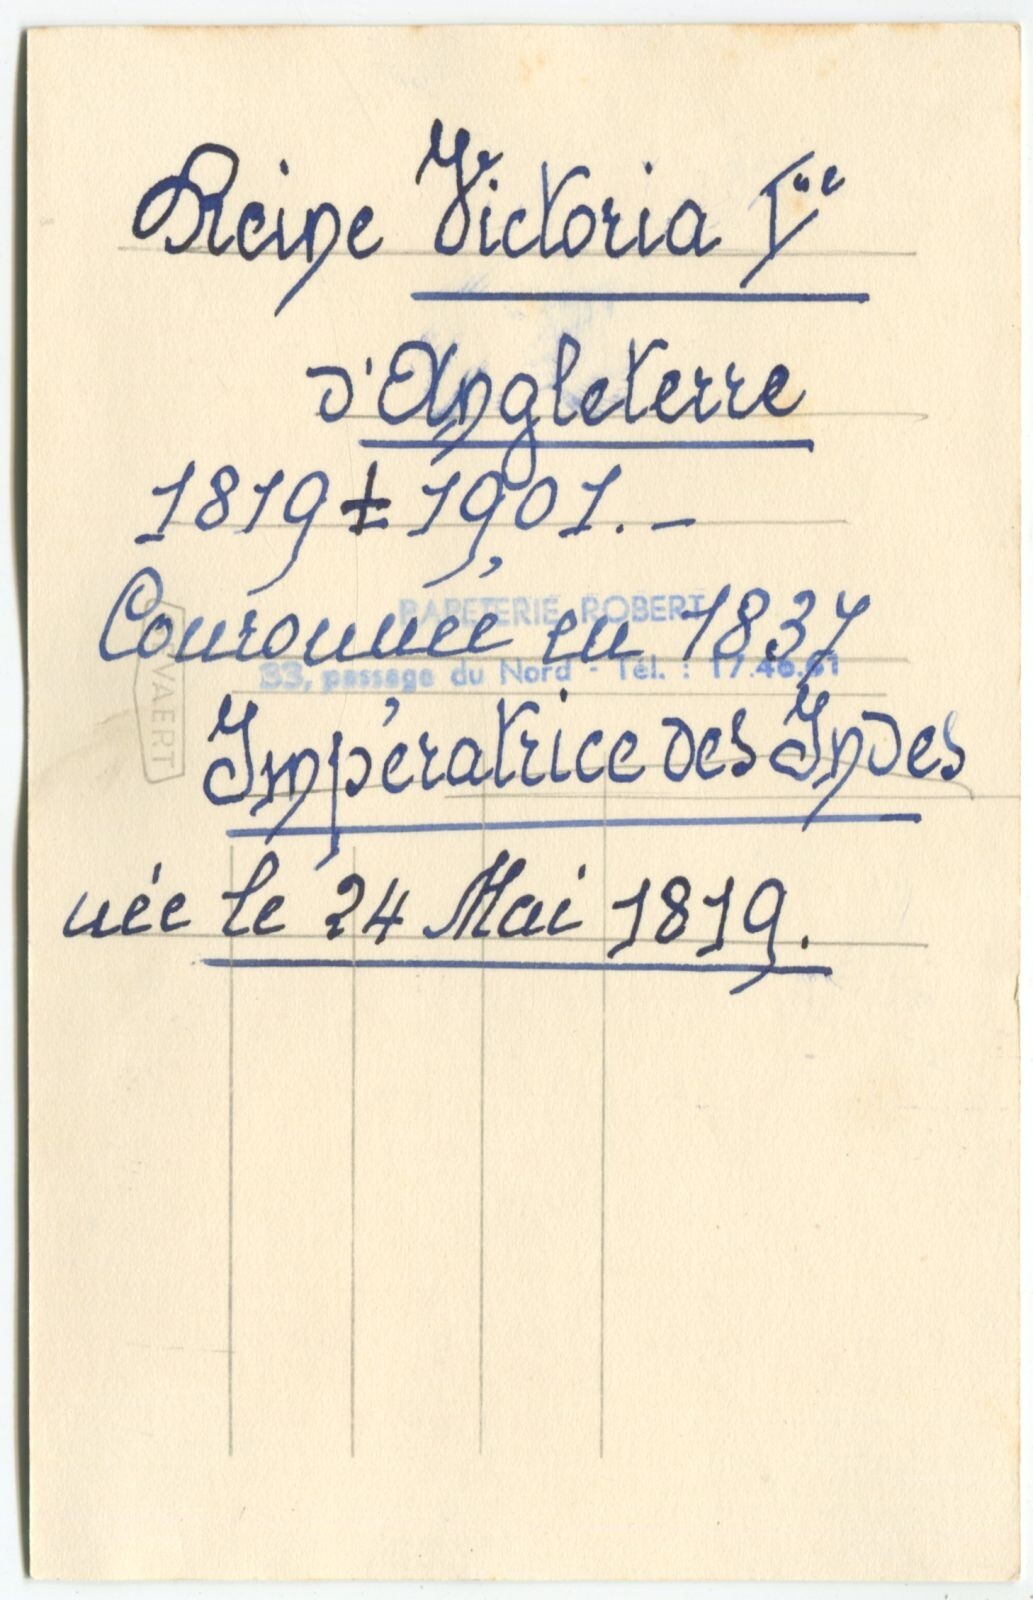 Reine Victoria Iʳᵉ
d'Angleterre
1819 ± 1901. -
Couronnée en 1837
PAPETERIE ROBERT
33, passage du Nord - Tél. : 17.46.61
Impératrice des Indes
née le 24 Mai 1819.
VAERT